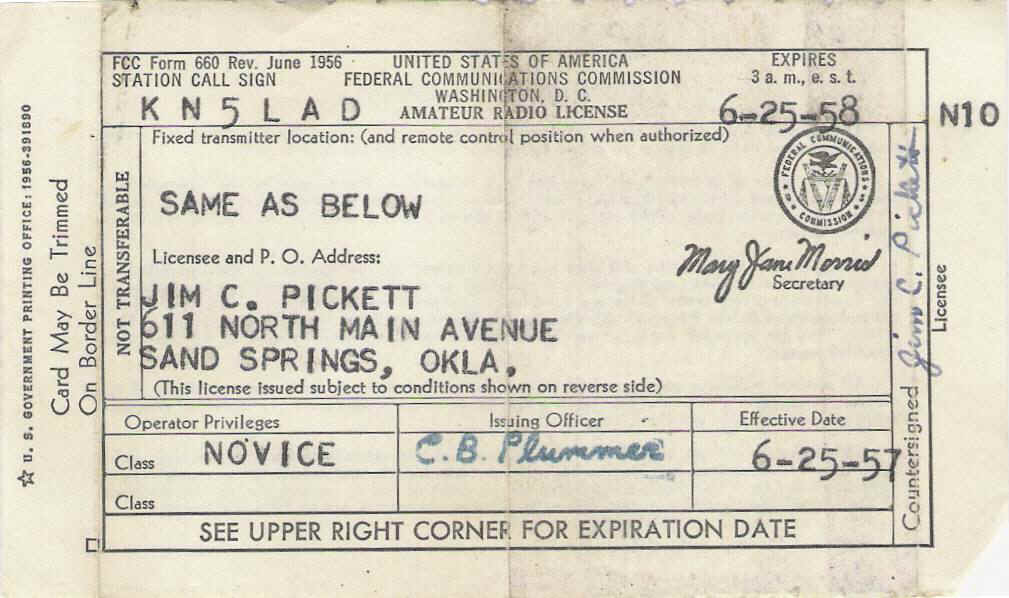 FCC Form 660 Rev. June 1956
STATION CALL SIGN
KN5LAD
UNITED STATES OF AMERICA
FEDERAL COMMUNICATIONS COMMISSION
WASHINGTON, D. C.
AMATEUR RADIO LICENSE
EXPIRES
3 a. m., e. s. t.
6-25-58
N10
Fixed transmitter location: (and remote control position when authorized)
SAME AS BELOW
FEDERAL COMMUNICATIONS
COMMISSION
Licensee and P. O. Address:
Mary Jane Morris
Secretary
JIM C. PICKETT
611 NORTH MAIN AVENUE
SAND SPRINGS, OKLA.
(This license issued subject to conditions shown on reverse side)
NOT TRANSFERABLE
Operator Privileges
Issuing Officer
Effective Date
Class NOVICE
C.B. Plummer
6-25-57
Class
SEE UPPER RIGHT CORNER FOR EXPIRATION DATE
Countersigned Jim C. Pickett
Licensee
Card May Be Trimmed
On Border Line
☆ U. S. GOVERNMENT PRINTING OFFICE: 1956-391890